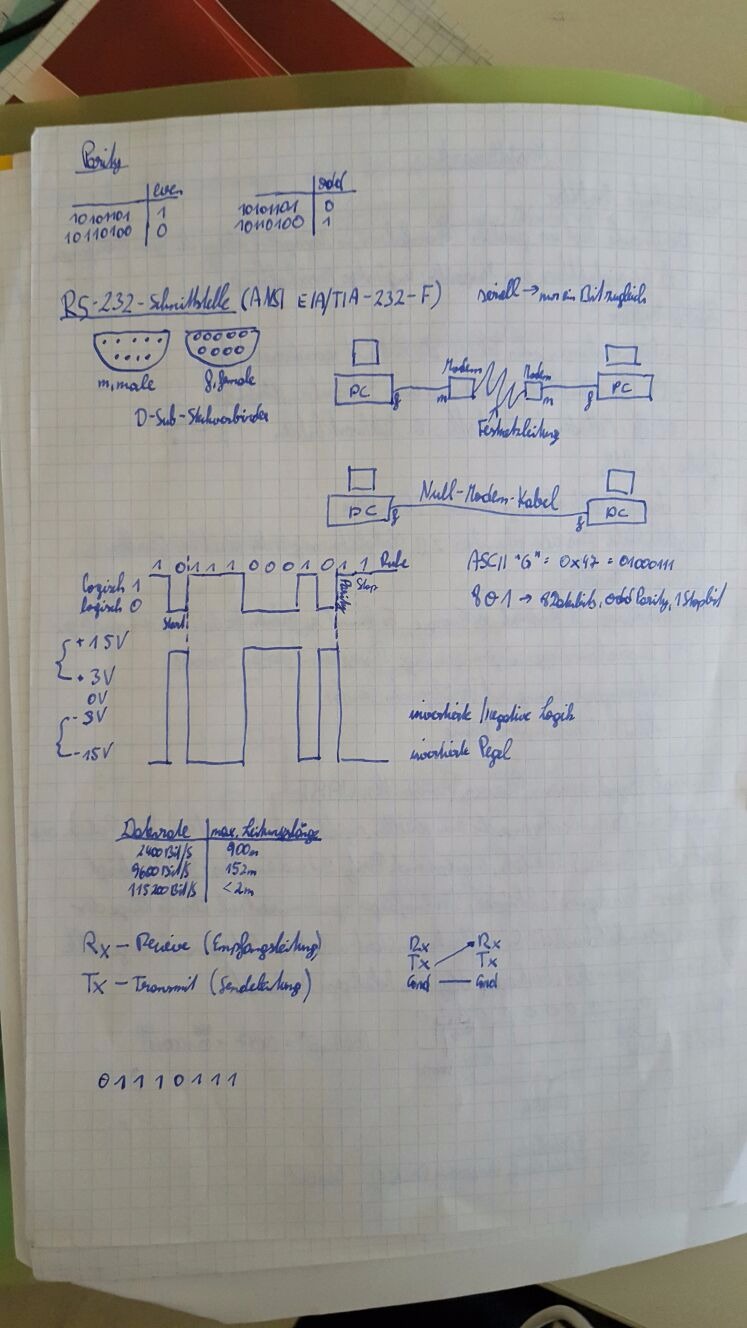 Parity
even
10101101 1
10110100 0
odd
10101101 0
10110100 1
RS-232-Schnittstelle (ANSI EIA/TIA-232-F) seriell → nur ein Bit zugleich
m, male
f, female
D-Sub-Steckverbinder
PC f m Modem Modem m f PC
Festnetzleitung
PC f Null-Modem-Kabel f PC
1 0 1 1 1 0 0 0 1 0 1 1 Ruhe
Logisch 1
Logisch 0
Start
Parity
Stop
ASCII "G" = 0x47 = 01000111
8 O 1 → 8 Datenbits, odd Parity, 1 Stopbit
+15V
+3V
0V
-3V
-15V
invertierte/negative Logik
invertierte Pegel
Datenrate max. Leitungslänge
2400 Bit/s 900m
9600 Bit/s 152m
115200 Bit/s <2m
Rx - Recieve (Empfangsleitung)
Tx - Transmit (Sendeleitung)
Rx Rx
Tx Tx
Gnd Gnd
0 1 1 1 0 1 1 1